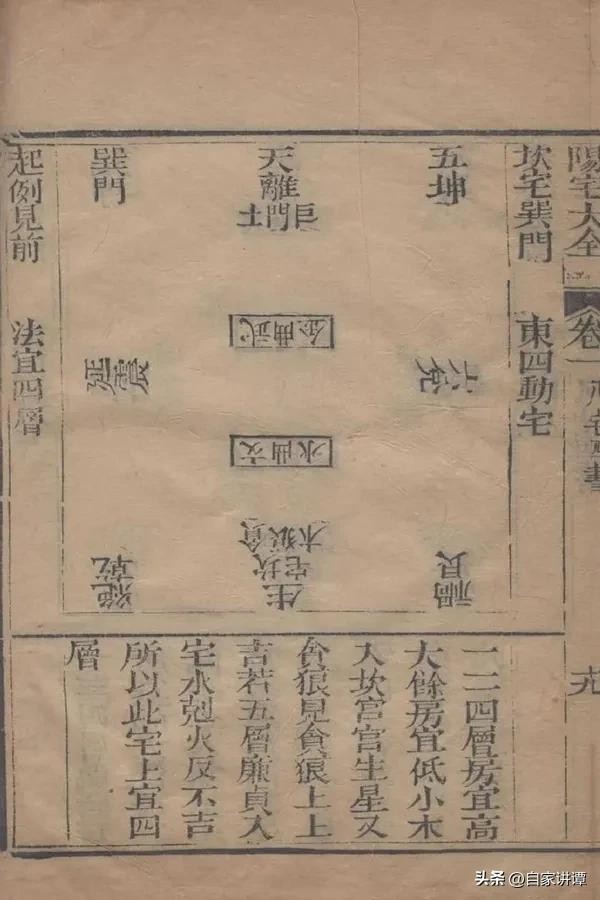 陽宅大全
卷一
十九
坎宅巽門　東四動宅
五坤
六兌
禍艮
天離門
巨土
武曲金
文曲水
貪狼木
坎宅
生
巽門
延震
絕乾
起例見前　法宜四層
一二四層房宜高
大餘房宜低小木
入坎宮宮生星又
貪狼見貪狼上上
吉若五層廉貞入
宅水剋火反不吉
所以此宅上宜四
層
头条 @自家讲谭